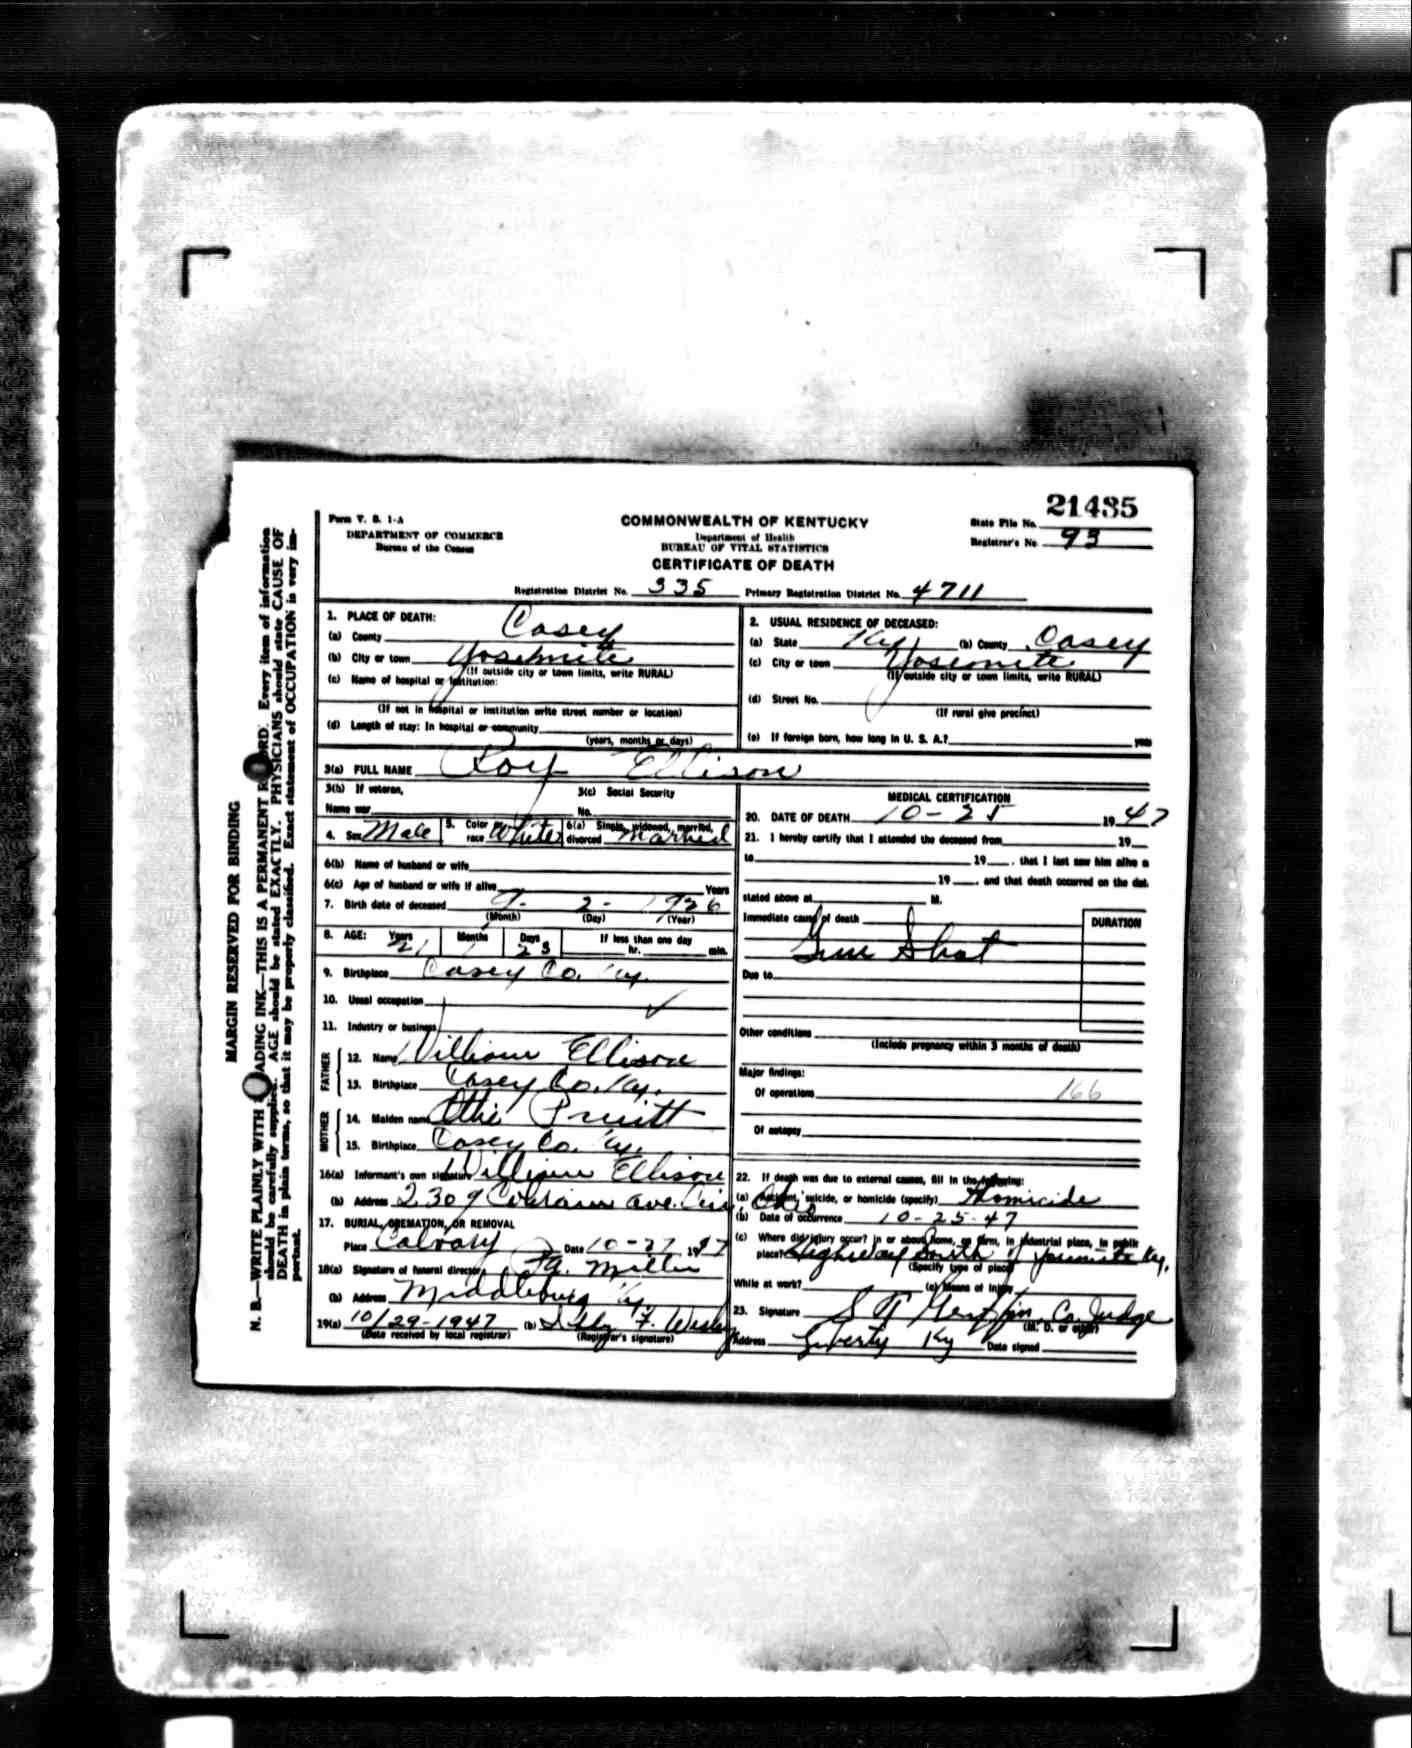 21435
Form V. S. 1-A
DEPARTMENT OF COMMERCE
Bureau of the Census
COMMONWEALTH OF KENTUCKY
Department of Health
BUREAU OF VITAL STATISTICS
CERTIFICATE OF DEATH
State File No.
Registrar's No. 93
Registration District No. 335 Primary Registration District No. 4711
MARGIN RESERVED FOR BINDING
N. B.—WRITE PLAINLY WITH ADING INK—THIS IS A PERMANENT RORD. Every item of information
should be carefully supplied. AGE should be stated EXACTLY. PHYSICIANS should state CAUSE OF
DEATH in plain terms, so that it may be properly classified. Exact statement of OCCUPATION is very im-
portant.
1. PLACE OF DEATH:
(a) County Casey
(b) City or town Yosemite
(If outside city or town limits, write RURAL)
(c) Name of hospital or institution:
(If not in hospital or institution write street number or location)
(d) Length of stay: In hospital or community
(years, months or days)
2. USUAL RESIDENCE OF DECEASED:
(a) State Ky (b) County Casey
(c) City or town Yosemite
(If outside city or town limits, write RURAL)
(d) Street No.
(If rural give precinct)
(e) If foreign born, how long in U. S. A.? years
3(a) FULL NAME Roy Ellison
3(b) If veteran,
Name war
3(c) Social Security
No.
4. Sex Male 5. Color or race White 6(a) Single, widowed, married, divorced Married
6(b) Name of husband or wife
6(c) Age of husband or wife if alive Years
7. Birth date of deceased 9- 2- 1926
(Month) (Day) (Year)
8. AGE: Years 21 Months 1 Days 23 If less than one day
hr. min.
9. Birthplace Casey Co. Ky.
10. Usual occupation
11. Industry or business
FATHER
12. Name William Ellison
13. Birthplace Casey Co. Ky.
MOTHER
14. Maiden name Ottie Pruitt
15. Birthplace Casey Co. Ky.
16(a) Informant's own signature William Ellison
(b) Address 2309 Colerain ave. Cin, Ohio
17. BURIAL, CREMATION, OR REMOVAL
Place Calvary Date 10-27 1947
18(a) Signature of funeral director Miller
(b) Address Middleburg Ky.
19(a) 10/29-1947 (b) F. Wesley
(Date received by local registrar) (Registrar's signature)
MEDICAL CERTIFICATION
20. DATE OF DEATH 10-25 1947
21. I hereby certify that I attended the deceased from 19
to 19, that I last saw him alive o
19, and that death occurred on the dat
stated above at M.
Immediate cause of death DURATION
Gun Shot
Due to
Other conditions
(Include pregnancy within 3 months of death)
Major findings:
Of operations 166
Of autopsy
22. If death was due to external causes, fill in the following:
(a) Accident, suicide, or homicide (specify) Homicide
(b) Date of occurrence 10-25-47
(c) Where did injury occur? in or about home, on farm, in industrial place, in public
place? Highway South of Yosemite Ky.
(Specify type of place)
While at work? (e) Means of injury
23. Signature Co. Judge
(M. D. or other)
Address Liberty Ky Date signed